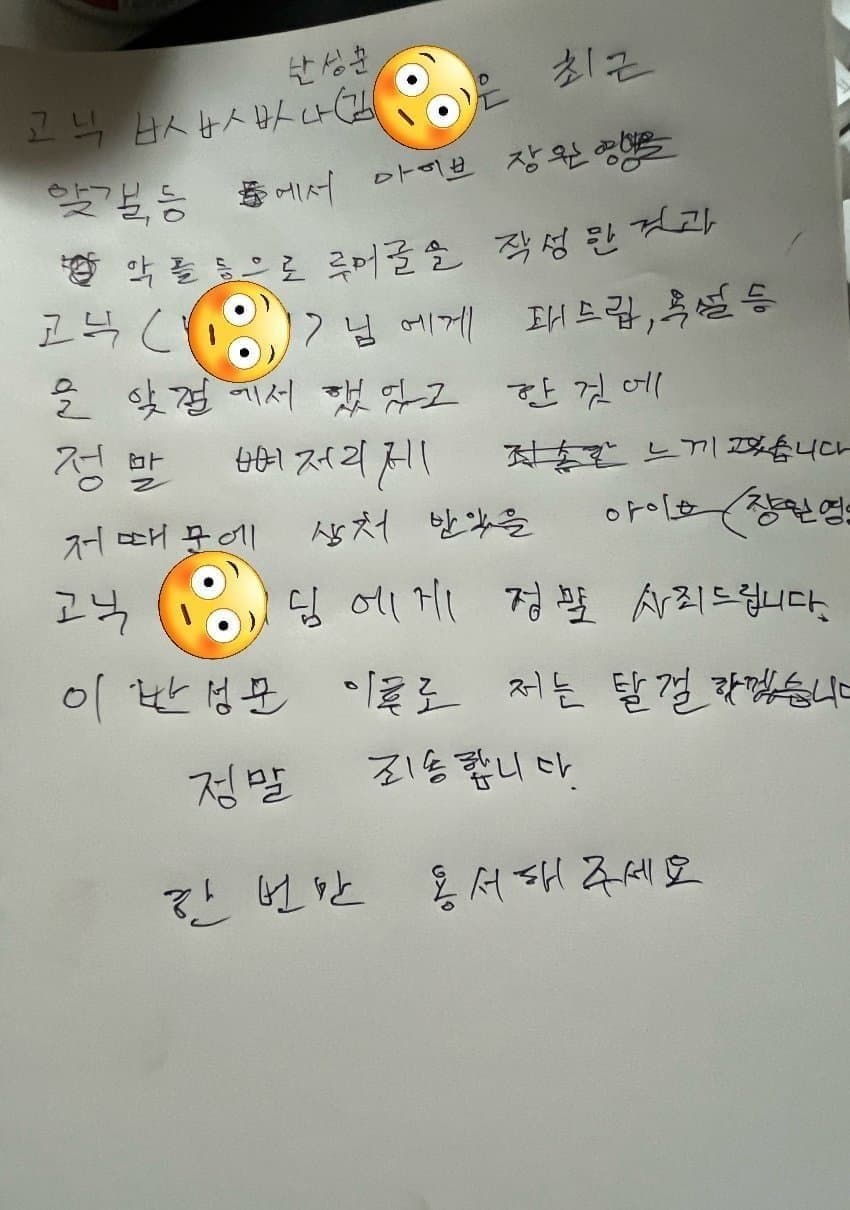 반성문
고닉 ㅂㅅㅂㅅ바나(김 은 최근
앚갤,등 에서 아이브 장원영을
악플등으로 루머글을 작성한것과
고닉( )님에게 패드립,욕설등
을 앚갤에서 했었고 한것에
정말 뼈저리게 느끼고있습니다
저때문에 상처 받았을 아이브(장원영
고닉 님에게 정말 사죄드립니다.
이 반성문 이후로 저는 탈갤하겠습니다
정말 죄송합니다.
한번만 용서해주세요